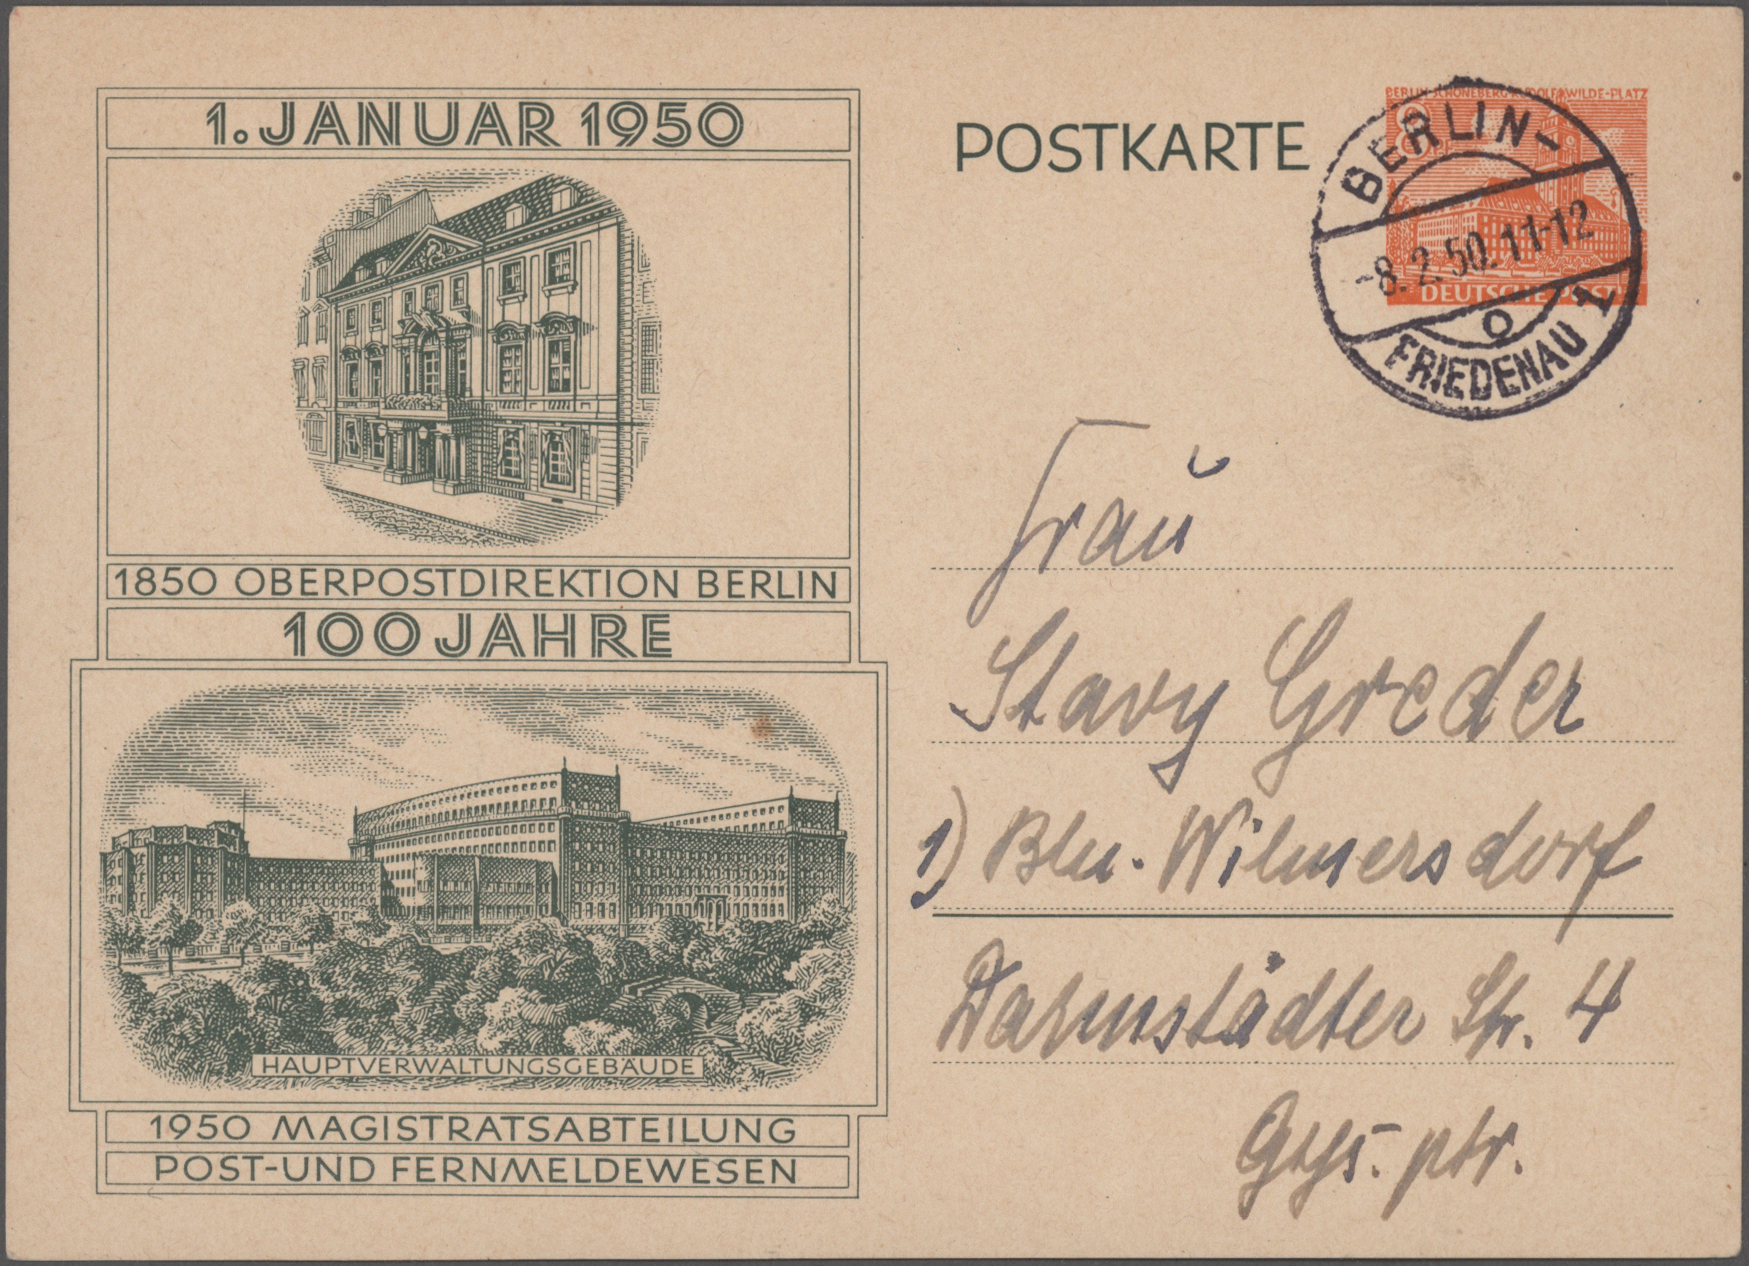 1. JANUAR 1950
1850 OBERPOSTDIREKTION BERLIN
100 JAHRE
HAUPTVERWALTUNGSGEBÄUDE
1950 MAGISTRATSABTEILUNG
POST-UND FERNMELDEWESEN
POSTKARTE
BERLIN-SCHÖNEBERG RUDOLF WILDE-PLATZ
8
DEUTSCHE POST
BERLIN-
-8.2.50.11-12
FRIEDENAU 1
Frau
Stavy Greder
1) Bln. Wilmersdorf
Darmstädter Str. 4
ptr.